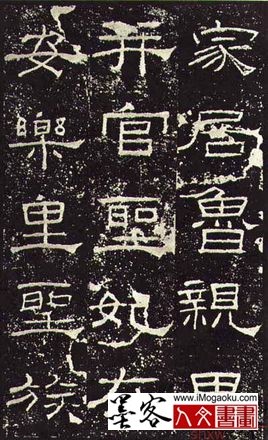 家居魯親里
并官聖妃在
安樂里聖族
www.iMogaoku.com
墨客人文書畫